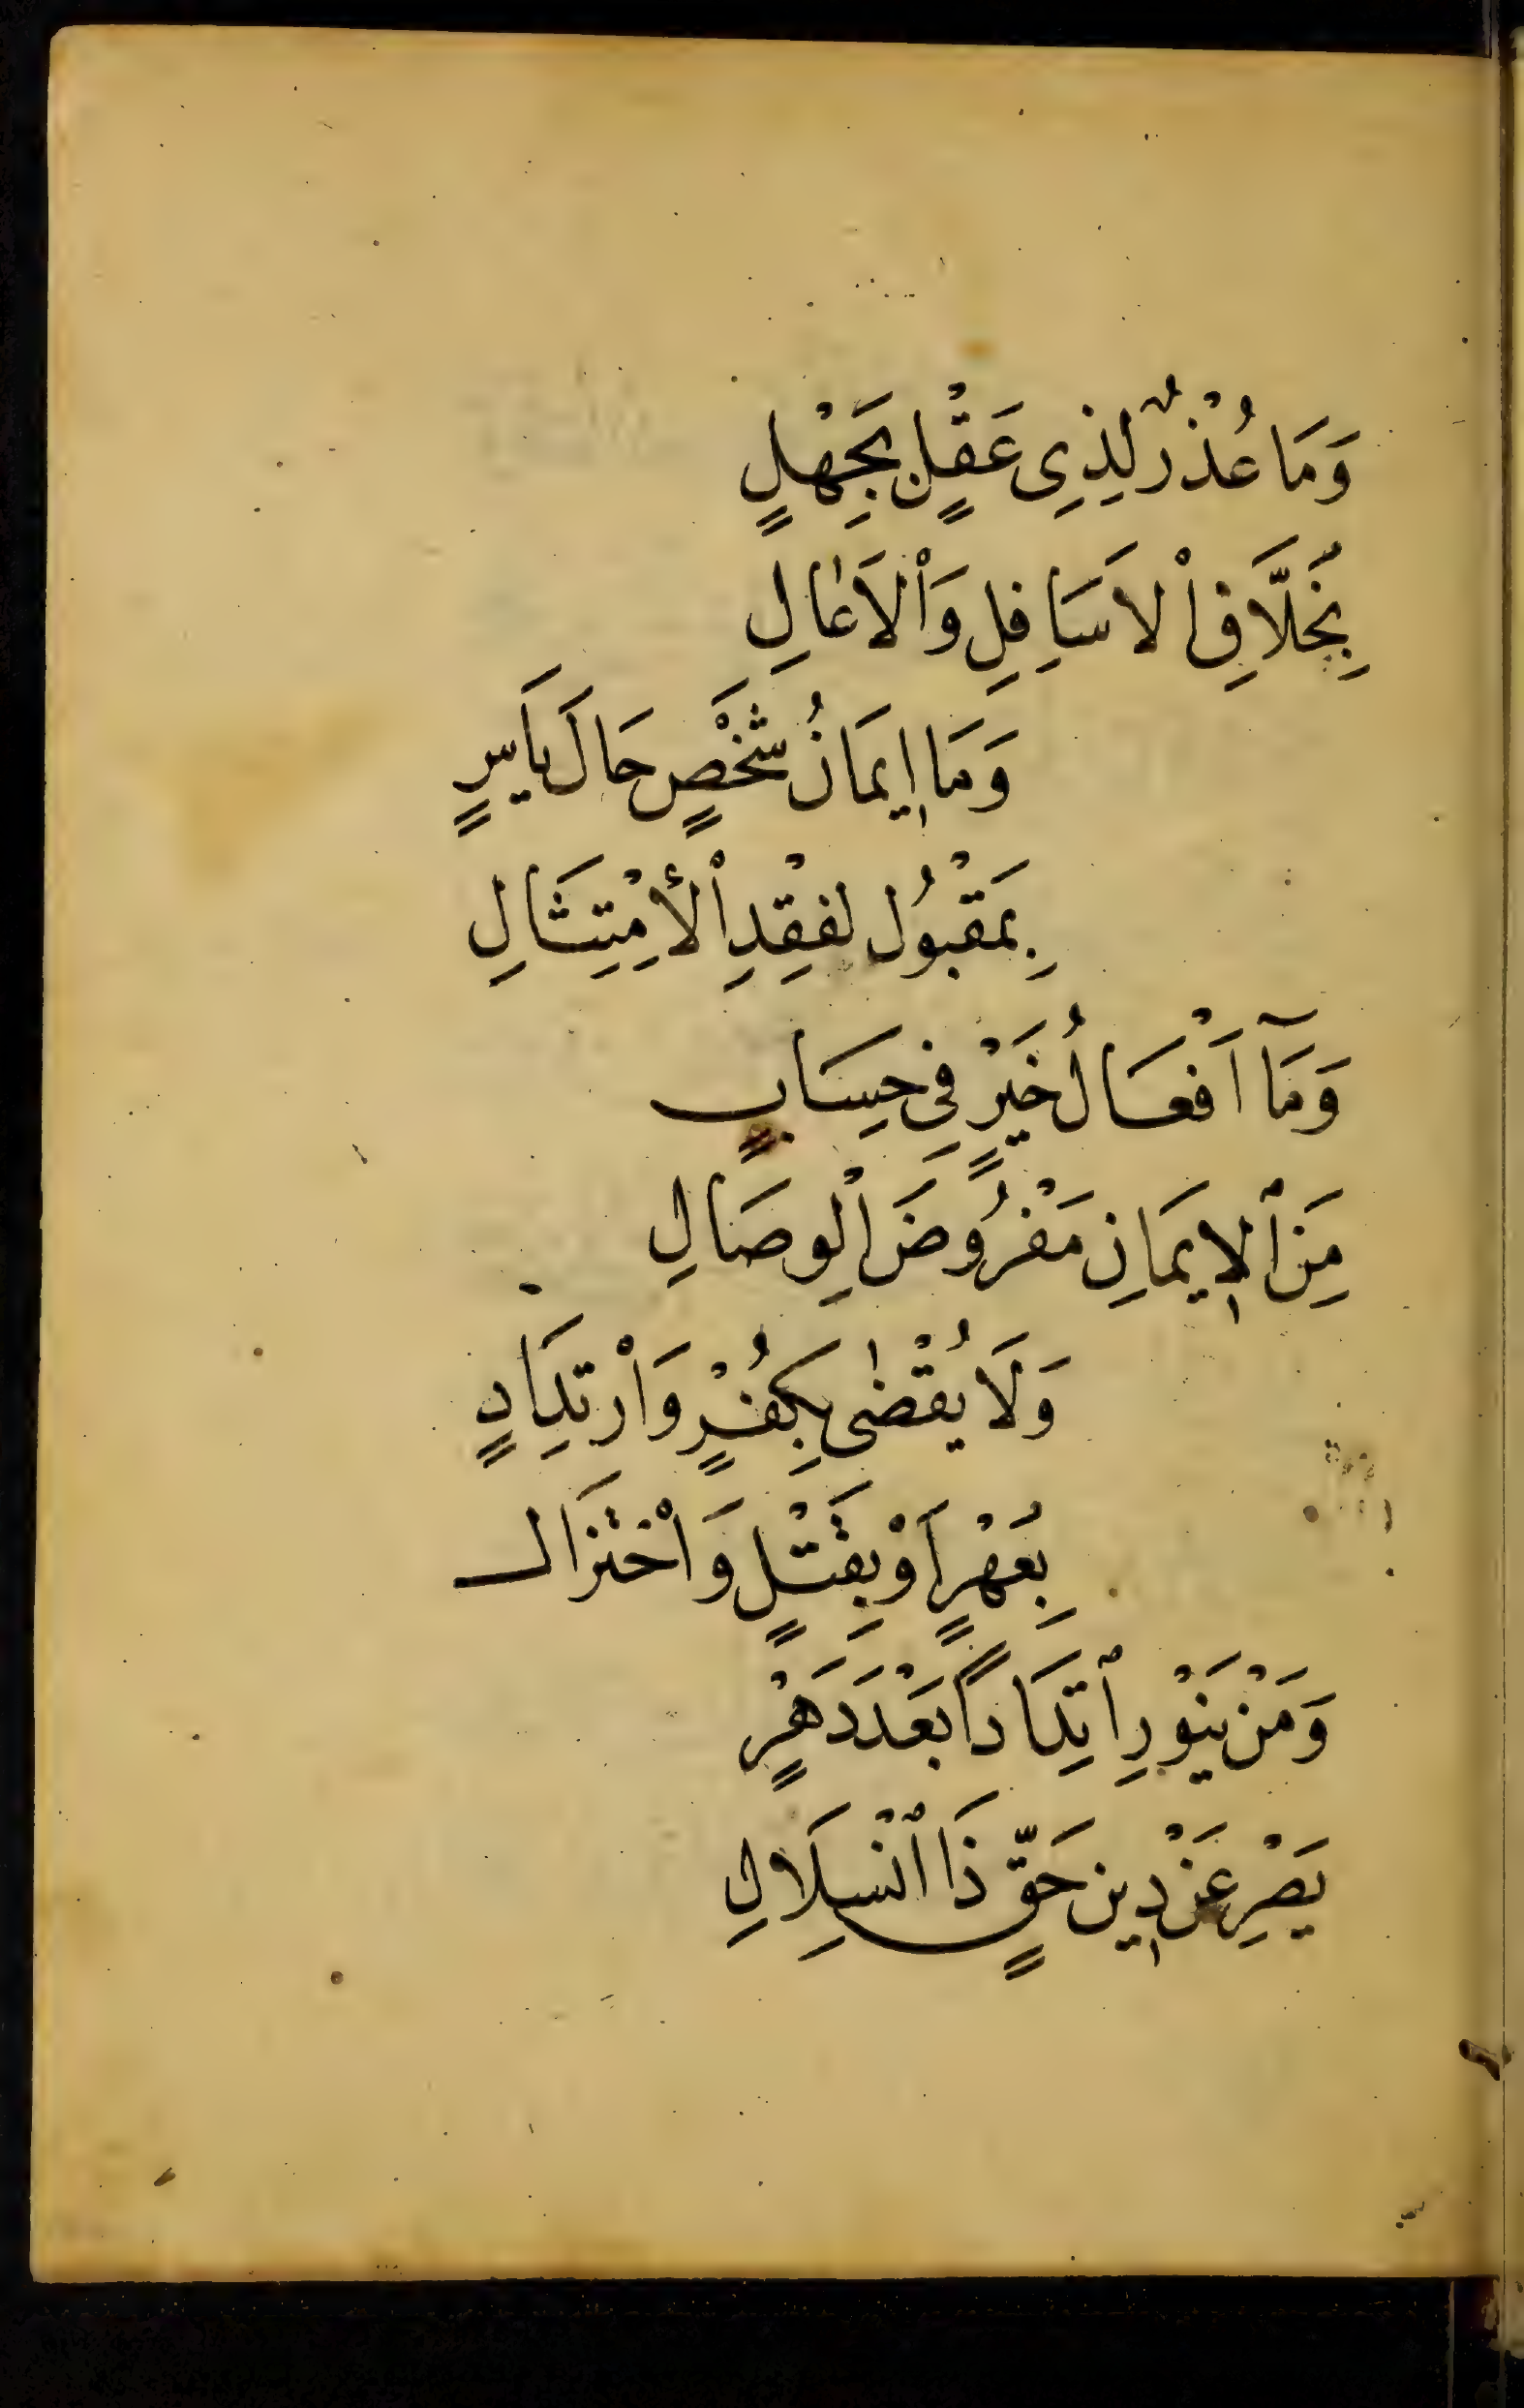 وَمَا عُذْرٌ لِذِي عَقْلٍ بِجَهْلٍ
بِخَلَّافِ اْلاَسَافِلِ وَاْلاَعَالِ
وَمَا اِيمَانُ شَخْصٍ حَالَ يَأسٍ
بِمَقْبُولٍ لِفَقْدِ اْلأِمْتِثَالِ
وَمَآ اَفْعَالُ خَيْرٍ فِى حِسَابٍ
مِنَ اْلاِيمَانِ مَفْرُوضَ الْوِصَالِ
وَلَا يُقْضٰى بِكُفْرٍ وَاْرْتِدَادٍ
بِعَهْرٍ اَوْ بِقَتْلٍ وَاْخْتِزَال
وَمَنْ يَنْوِ اْرْتِدَاداً بَعْدَ دَهْرٍ
يَصِرْ عَنْ دِينِ حَقٍّ ذَا اْنْسِلَالِ